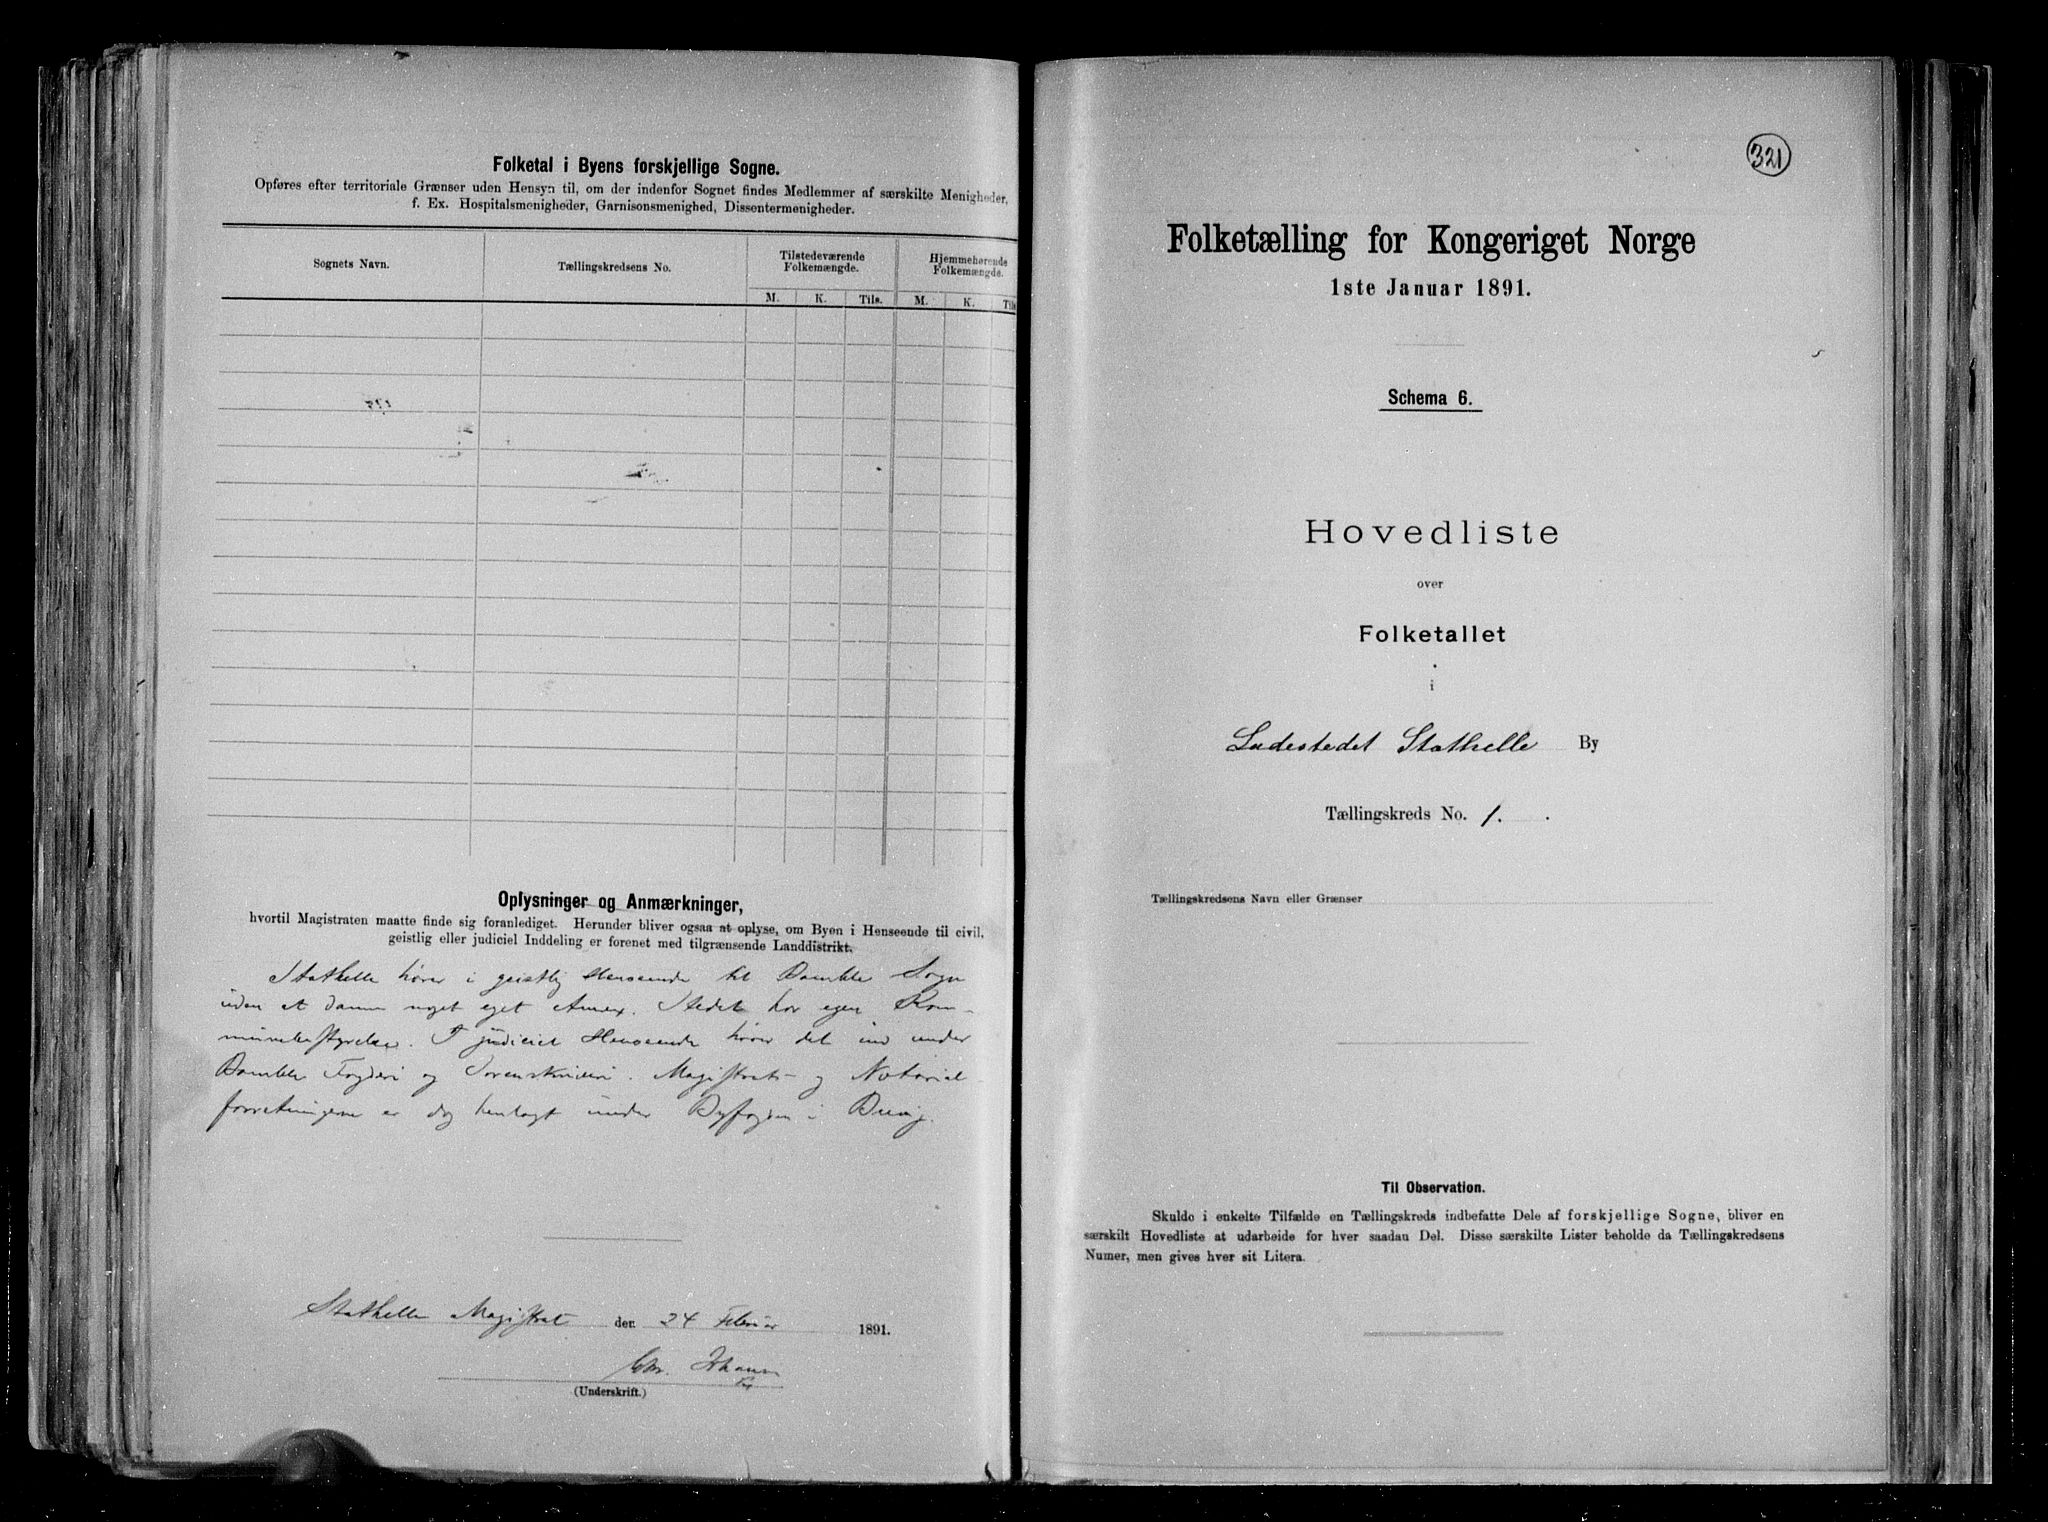 Folketal i Byens forskjellige Sogne.
Opføres efter territoriale Grænser uden Hensyn til, om der indenfor Sognet findes Medlemmer af særskilte Menigheder,
f. Ex. Hospitalsmenigheder, Garnisonsmenighed, Dissentermenigheder.
Sognets Navn. Tællingskredsens No. Tilstedeværende Folkemængde. Hjemmehørende Folkemængde.
M. K. Tils. M. K. Tils
Oplysninger og Anmærkninger,
hvortil Magistraten maatte finde sig foranlediget. Herunder bliver ogsaa at oplyse, om Byen i Henseende til civil,
geistlig eller judiciel Inddeling er forenet med tilgrænsende Landdistrikt.
Stathelle hører i geistlig Henseende til Bamble Sogn
uden at danne noget eget Annex. Stedet har egen Kom-
munebestyrelse. I judiciel Henseende hører det ind under
Bamble Fogderi og Sorenskriveri. Magistrats- og Notarial-
forretningerne er dog henlagt under Byfogden i Brevig.
Stathelle Magistrat den 24 Februar 1891.
Chr. Johansen
(Underskrift.)
321
Folketælling for Kongeriget Norge
1ste Januar 1891.
Schema 6.
Hovedliste
over
Folketallet
i
Ladestedet Stathelle By
Tællingskreds No. 1.
Tællingskredsens Navn eller Grænser
Til Observation.
Skulde i enkelte Tilfælde en Tællingskreds indbefatte Dele af forskjellige Sogne, bliver en
særskilt Hovedliste at udarbeide for hver saadan Del. Disse særskilte Lister beholde da Tællingskredsens
Numer, men gives hver sit Litera.